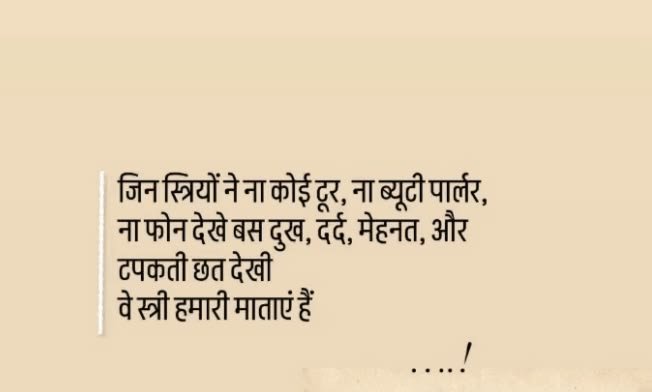 जिन स्त्रियों ने ना कोई टूर, ना ब्यूटी पार्लर,
ना फोन देखे बस दुख, दर्द, मेहनत, और
टपकती छत देखी
वे स्त्री हमारी माताएं हैं
....!